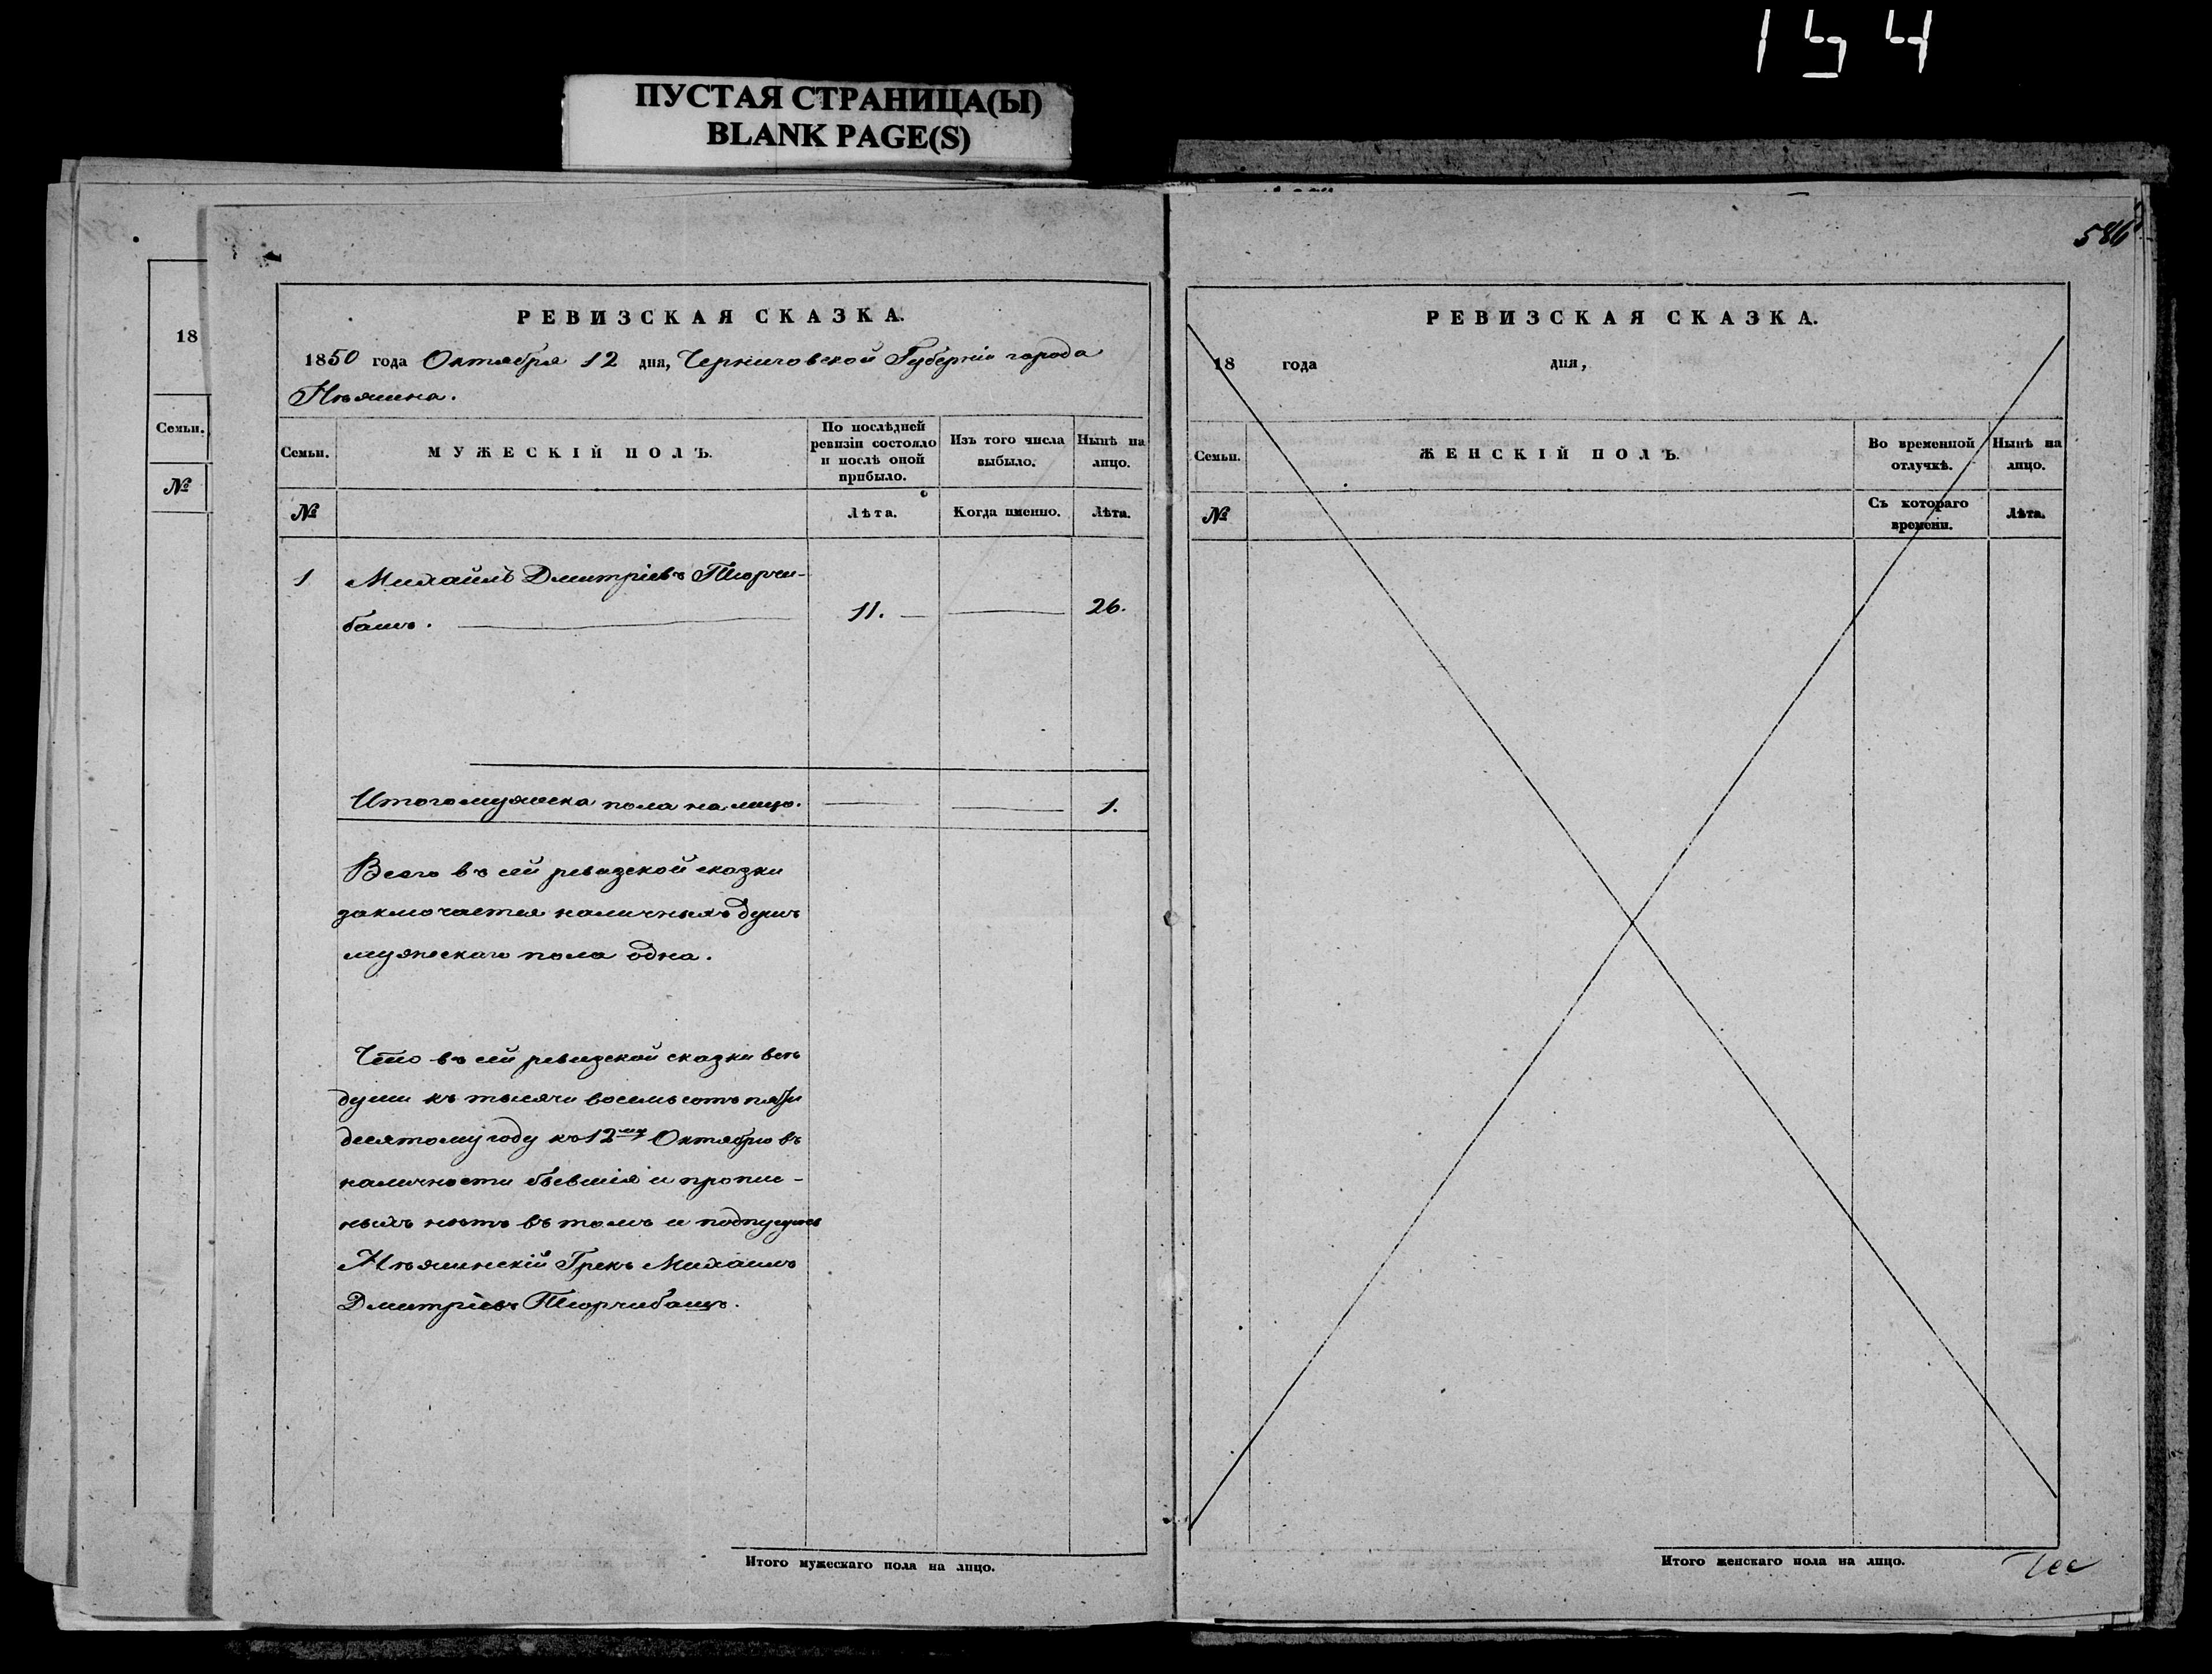 154
ПУСТАЯ СТРАНИЦА(Ы)
BLANK PAGE(S)
18
Семьи.
№
РЕВИЗСКАЯ СКАЗКА.
1850 года Октября 12 дня, Черниговской Губерніи города
Нѣжина.
Семьи. МУЖЕСКІЙ ПОЛЪ. По послѣдней ревизіи состояло и послѣ оной прибыло. Изъ того числа выбыло. Нынѣ на лицо.
№ Лѣта. Когда именно. Лѣта.
1 Михаилъ Дмитріевъ Тюрчи-
башъ. 11. 26.
Итого мужеска пола на лицо. 1.
Всего въ сей ревизской сказки
заключается наличныхъ душъ
мужескаго пола одна.
Что въ сей ревизской сказки всѣ
души къ тысячи восемьсотъ пяти
десятому году къ 12му Октябрю въ
наличности бывшія и пропис-
ныхъ нѣтъ въ томъ и подпишусь
Нѣжинскій Грекъ Михаилъ
Дмитріевъ Тюрчибашъ.
Итого мужескаго пола на лицо.
586
РЕВИЗСКАЯ СКАЗКА.
18 года дня,
Семьи. ЖЕНСКІЙ ПОЛЪ. Во временной отлучкѣ. Нынѣ на лицо.
№ Съ котораго времени. Лѣта.
Итого женскаго пола на лицо.